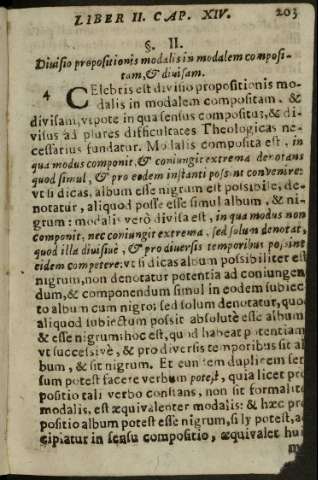 LIBER II. CAP. XIV. 203
§. II.
Diuisio propositionis modalis in modalem composi-
tam, & diuisam.
4 CElebris est diuisio propositionis mo-
dalis in modalem compositam, &
diuisam, vtpote in qua sensus compositus, & di-
uisus ad plures difficultates Theologicas ne-
cessarius fundatur. Modalis composita est, in
qua modus componit, & coniungit extrema denotans
quod simul, & pro eodem instanti possint conuenire:
vt si dicas, album esse nigrum est possibile, de-
notatur, aliquod posse esse simul album, & ni-
grum: modalis verò diuisa est, in qua modus non
componit, nec coniungit extrema, sed solum denotat,
quod illa diuisiuè, & pro diuersis temporibus possint
eidem competere: vt si dicas album possibiliter est
nigrum, non denotatur potentia ad coniungen
dum, & componendum simul in eodem subiec
to album cum nigro: sed solum denotatur, quod
aliquod subiectum possit absolutè esse album
& esse nigrum: hoc est, quod habeat potentiam
vt successiuè, & pro diuersis temporibus sit al
bum, & sit nigrum. Et eundem duplicem sen
sum potest facere verbum potest, quia licet pro
positio tali verbo constans, non sit formalite
modalis, est æquiualenter modalis: & hæc pro
positio album potest esse nigrum, si ly potest, ac
cipiatur in sensu composito, æquiualet hui